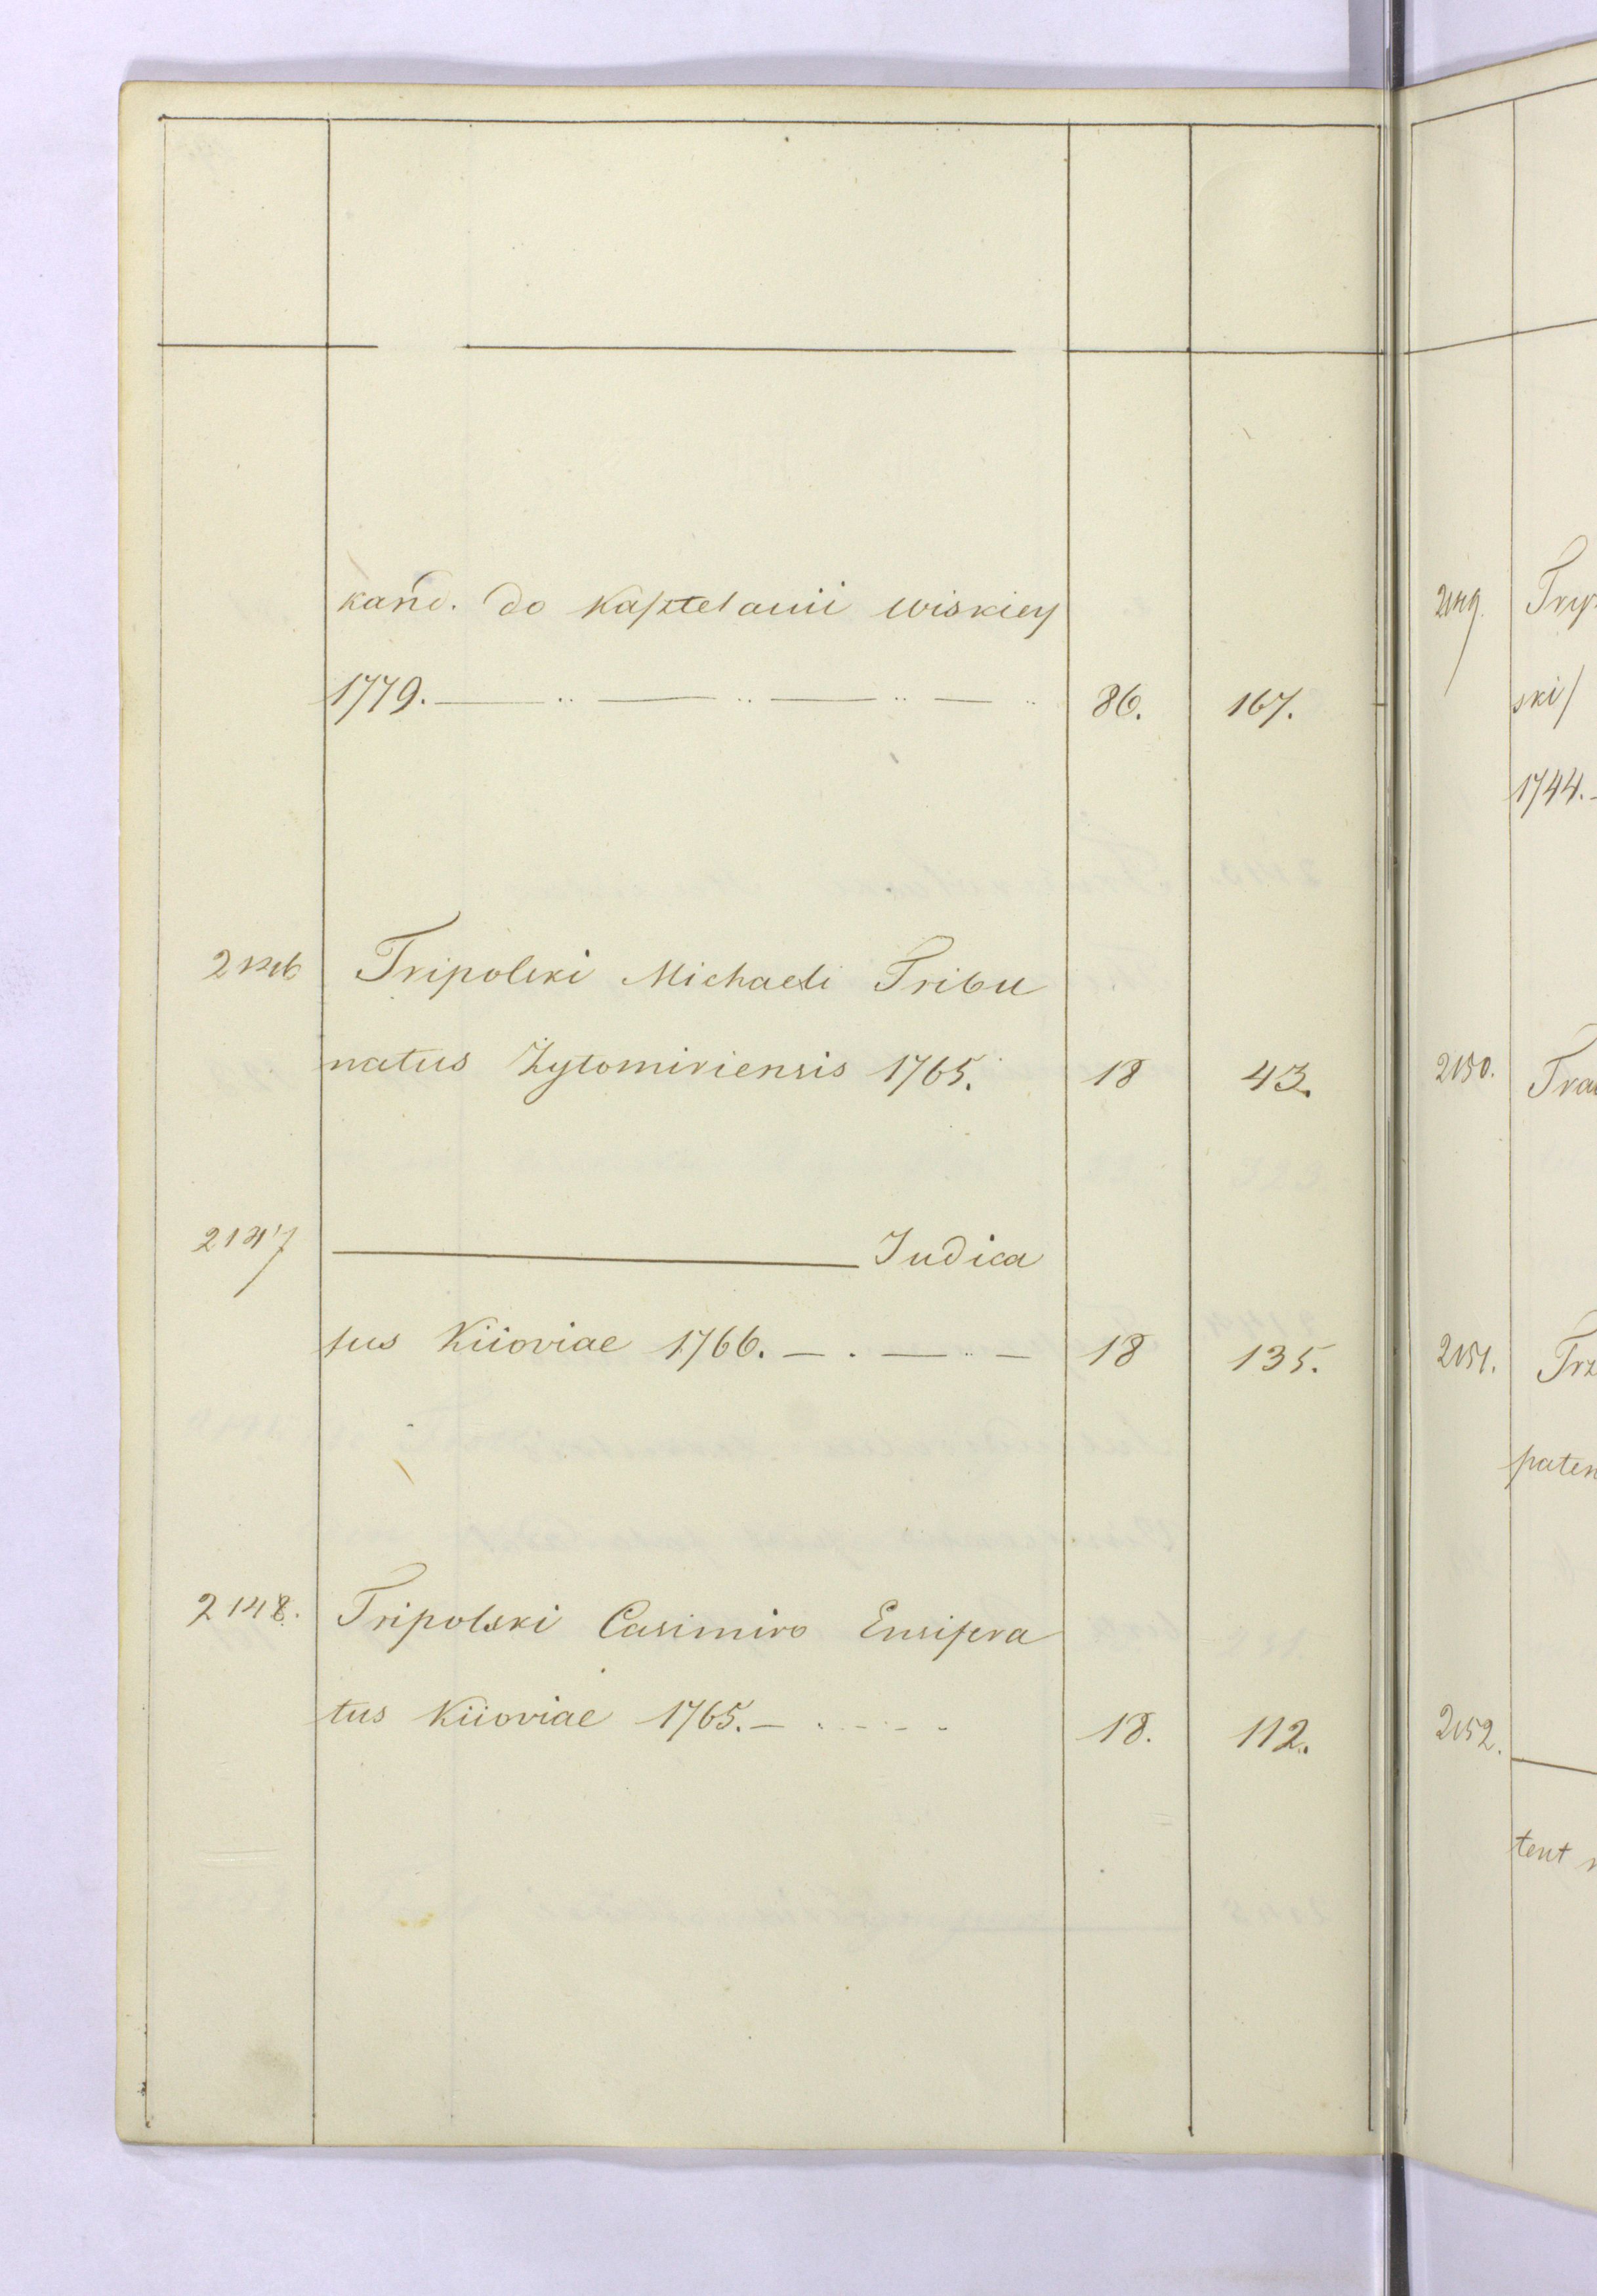 kand. do Kasztelanii wiskiey
1779. — .. — .. — .. — .. 86. 167.
2146 Tripolski Michaeli Tribu
natus Żytomiriensis 1765. 18 43.
2147 ——— Judica
tus Kiioviae 1766. — . — .. — 18 135.
2148. Tripolski Casimiro Ensifera
tus Kiioviae 1765. — . - . - . - 18. 112.
2149. Try
ski/
1744.
2150. Tra
2151. Trz
paten
2152. —
tent